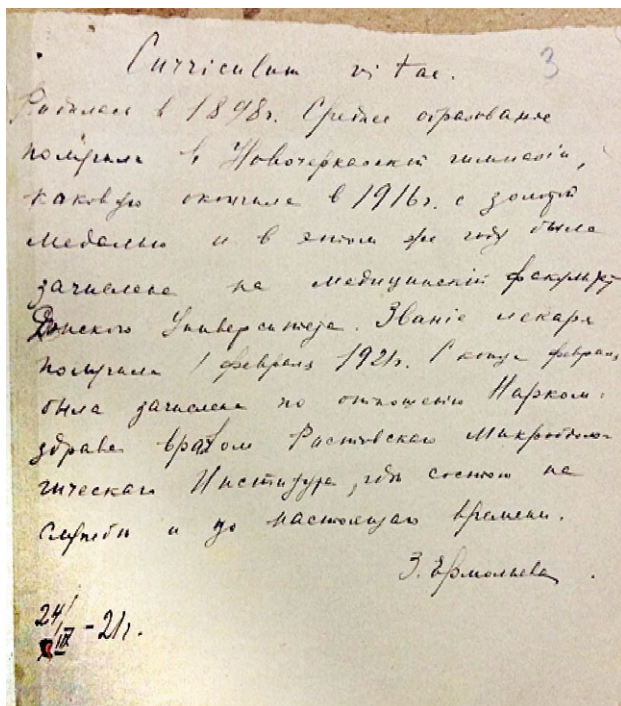 Curriculum vitae. 3
Родилась в 1898г. Среднее образование
получила в Новочеркасской гимназіи,
каковую окончила в 1916г. с золотой
медалью и в этом же году была
зачислена на медицинскій факультет
Донского Университета. Званіе лекаря
получила 1 февраля 1921г. С конца февраля
была зачислена по отношенію Нарком-
здрава врачом Ростовскаго Микробіоло-
гическаго Института, где состою на
службе и до настоящаго времени.
З. Ермольева.
24/IX - 21г.